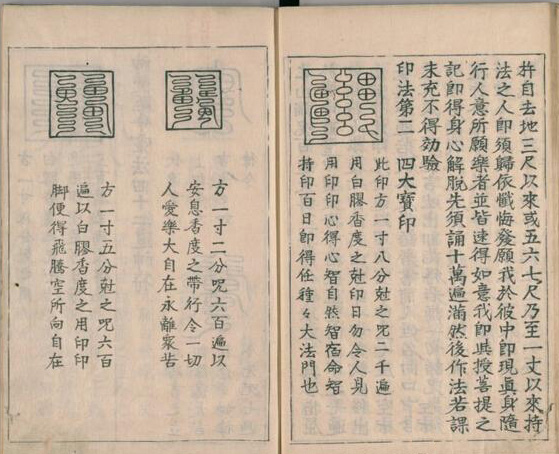 杵自去地三尺以來或五六七尺乃至一丈以來持
法之人即須歸依懺悔發願我於彼中即現眞身隨
行人意所願樂者並皆速得如意我即與授菩提之
記即得身心解脫先須誦十萬遍滿然後作法若課
未充不得効驗
印法第二　四大寶印
此印方一寸八分尅之咒二千遍
用白膠香度之尅印日勿令人見
用印印心得心智自然智宿命智
持印百日即得任種々大法門也
方一寸二分咒六百遍以
安息香度之帶行令一切
人愛樂大自在永離衆苦
方一寸五分尅之咒六百
遍以白膠香度之用印印
脚便得飛騰空所向自在